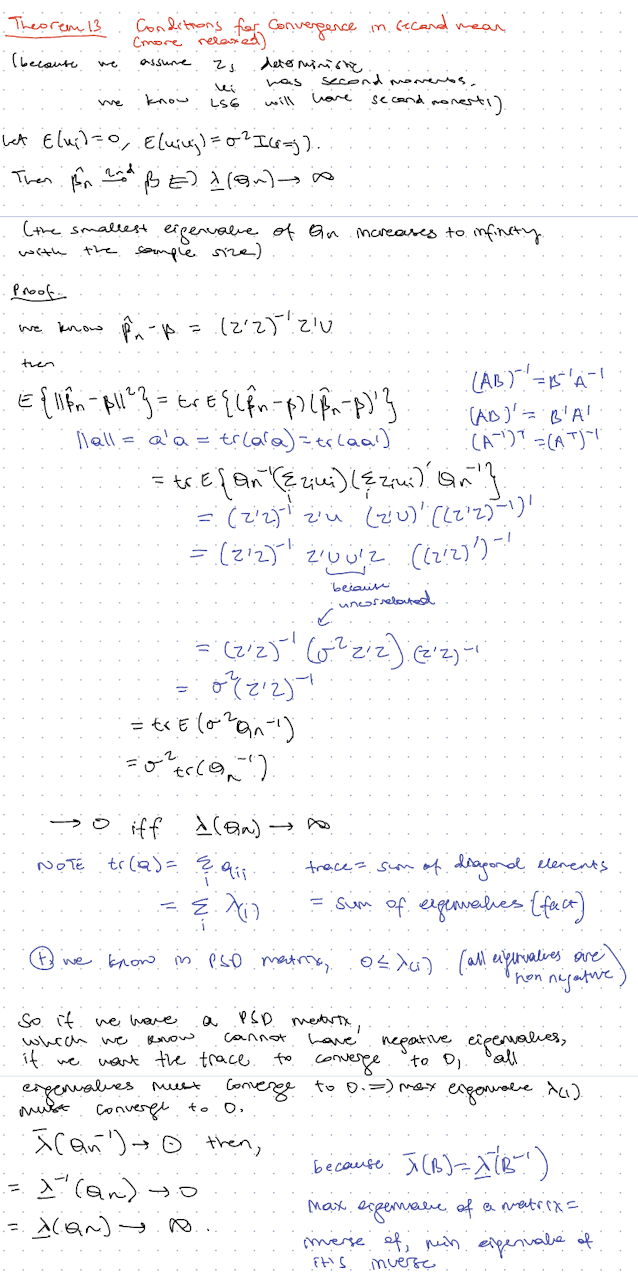 Theorem 13 Conditions for Convergence in second mean
(more relaxed)
(because we assume zj deterministic
ui has second moments.
we know LSE will have second moments!)
Let E(ui)=0, E(uiuj)=σ²I(i=j).
Then β̂n →2nd β ⇔ λ̲(Qn) → ∞
(the smallest eigenvalue of Qn increases to infinity
with the sample size)
Proof.
we know β̂n-β = (Z'Z)⁻¹Z'U
then
E{||β̂n-β||²} = tr E{(β̂n-β)(β̂n-β)'}
(AB)⁻¹=B⁻¹A⁻¹
(AB)' = B'A'
(A⁻¹)ᵀ=(Aᵀ)⁻¹
||a|| = a'a = tr(a'a) = tr(aa')
= tr E{Qn⁻¹(Σi ziui)(Σi ziui)'Qn⁻¹}
= (Z'Z)⁻¹ Z'U (Z'U)' ((Z'Z)⁻¹)'
= (Z'Z)⁻¹ Z'UU'Z ((Z'Z)')⁻¹
because
uncorrelated
= (Z'Z)⁻¹ (σ²Z'Z) (Z'Z)⁻¹
= σ²(Z'Z)⁻¹
= tr E(σ²Qn⁻¹)
= σ²tr(Qn⁻¹)
→ 0 iff λ̲(Qn) → ∞
NOTE tr(Q) = Σi qii trace = sum of diagonal elements
= Σi λ(i) = sum of eigenvalues (fact)
⊕ we know in PSD matrix, 0 ≤ λ(i) (all eigenvalues are
non negative)
So if we have a PSD matrix,
which we know cannot have negative eigenvalues,
if we want the trace to converge to 0, all
eigenvalues must converge to 0. ⇒ max eigenvalue λ(1)
must converge to 0.
λ̄(Qn⁻¹) → 0 then,
= λ̲⁻¹(Qn) → 0
= λ̲(Qn) → ∞.
because λ̄(B) = λ̲⁻¹(B⁻¹)
max eigenvalue of a matrix =
inverse of, min eigenvalue of
its inverse